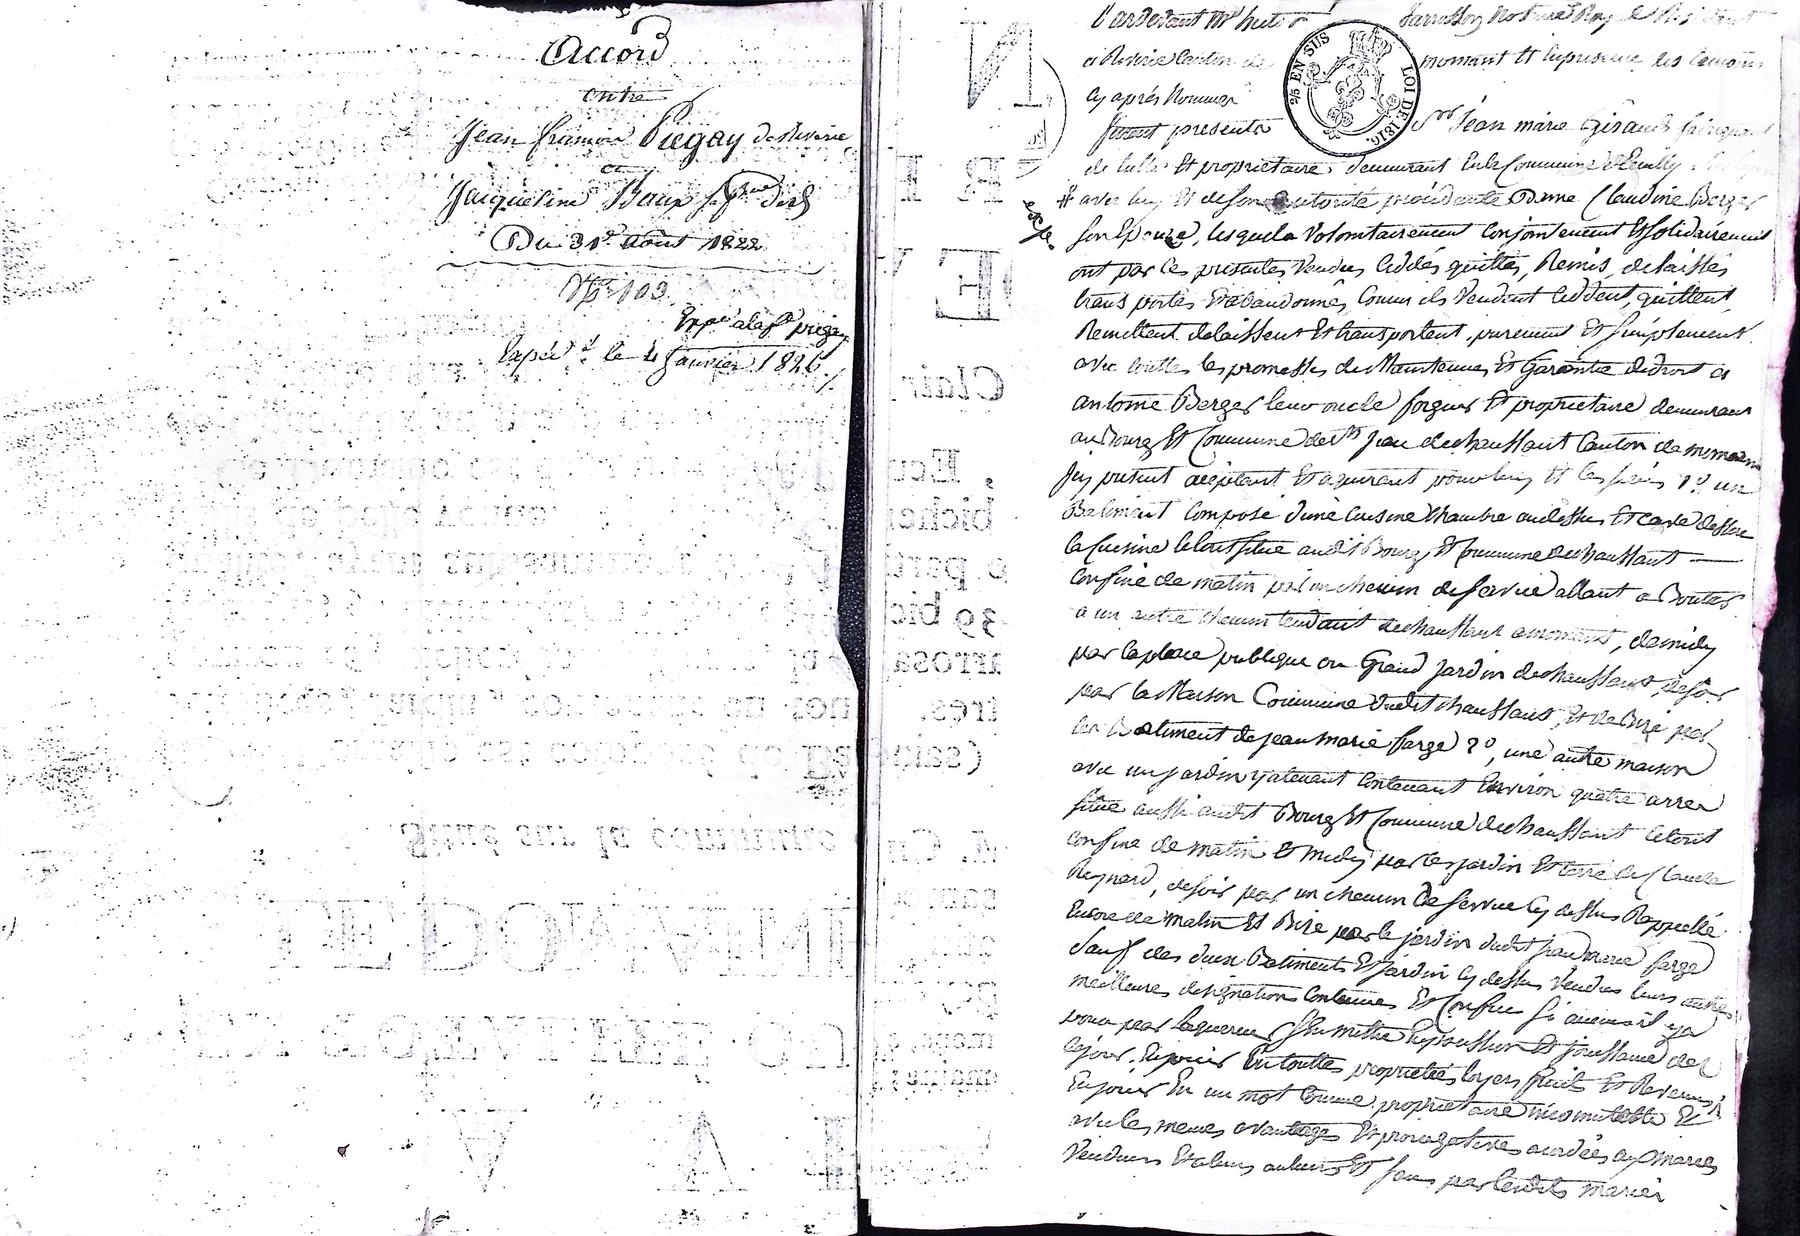 Accord
entre
Jean françois Piegay de Riverie
et
Jacqueline Baup sa f.
Du 31e. août 1822
No. 109
Expé. le 4 Janvier 1826
Pardevant Me
Notaire Roy
à Riverie Canton de
mornant Et en presence les temoins
Cy après Nommés
25 EN SUS
LOI DE 1816.
furent presents
Sr. Jean marie Giraud
de tulle Et proprietaire demeurant En la Commune d'Ecully
avec luy Et de son autorité procédante Dame Claudine Berger
son Epouse, lesquels Volontairement conjointement Et solidairement
ont par Ces presentes Vendus Cédés quittés, Remis, delaissés
transportés Et abandonnés, Comme ils Vendent Cèdent, quittent
Remettent delaissent Et transportent, purement Et simplement
avec touttes les promesses de Maintenues Et Garentie de droit à
antoine Berger leur oncle forgeur Et proprietaire demeurant
au Bourg Et Commune de St. Jean de chaussant Canton de mornant
Icy present acceptant Et aquerant pour luy Et les siens 1o. un
Batiment Composé d'une Cuisine Chambre au dessus Et cave dessous
la Cuisine le tout situé audit Bourg Et Commune de chaussant
Confiné de matin par un chemin de service allant aboutir
a un autre chemin tendant de chaussant a mornant, de midy
par la place publique ou Grand Jardin de chaussant, de soir
par la Maison Commune dudit chaussant, Et de Bize par
les Batiment de jean marie farge 2o, une autre maison
avec un jardin y atenant Contenant Environ quatre arres
situé aussi audit Bourg Et Commune de chaussant le tout
confiné de matin Et midy par les jardin Et terre de Claude
Reynard, de soir par un chemin de service Cy dessus Rappellé
Encore de matin Et Bize par le jardin dudit jean marie farge
Sauf des deux Batiments Et jardin Cy dessus Vendus leurs autres
meilleures designations Contenues Et Confins si aucun il y a
pour par laquereur se mettre En possession Et jouissance de
ce jour, En jouir En touttes proprietés loyers fruits Et Revenus
En jouir En un mot Comme proprietaire incomutable Et
avec les memes avantages Et prerogatives acordées aux mariés
Vendeurs Et a leurs auteurs Et sous par lesdits mariés